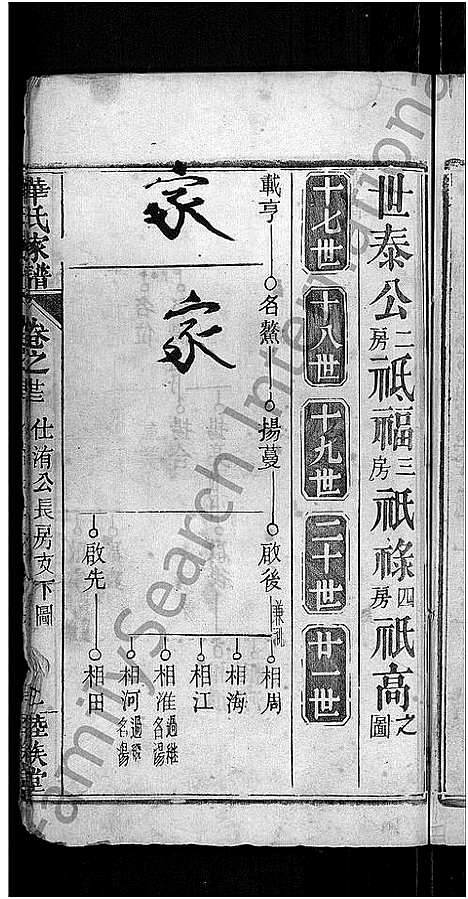 世泰公二房祇福三房祇祿四房祇高之圖
十七世
十八世
十九世
二十世
廿一世
載亨
名鰲
揚蔓
啟後兼祧
相周
相海
相江
相淮過繼名湯
相河過繼名湯
啟先
相田
家
家
華氏家譜
卷之
仕洧公長房支下圖
睦族堂
FamilySearch International